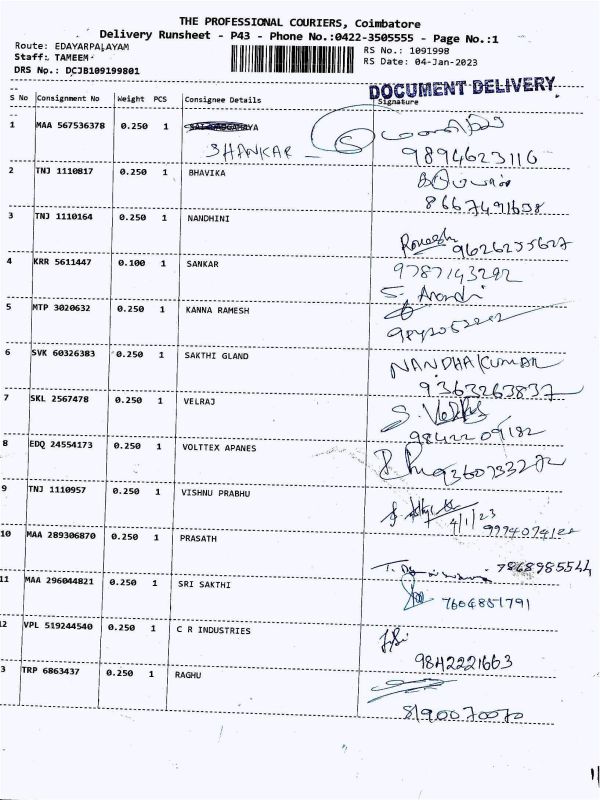 THE PROFESSIONAL COURIERS, Coimbatore
Delivery Runsheet - P43 - Phone No.:0422-3505555 - Page No.:1
Route: EDAYARPALAYAM RS No.: 1091998
Staff: TAMEEM RS Date: 04-Jan-2023
DRS No.: DCJB109199801
DOCUMENT DELIVERY
S No Consignment No Weight PCS Consignee Details Signature
1 MAA 567536378 0.250 1
SHANKAR 9894623116
2 TNJ 1110817 0.250 1 BHAVIKA
8667491638
3 TNJ 1110164 0.250 1 NANDHINI
Romesh 9626255627
4 KRR 5611447 0.100 1 SANKAR 9787143292
5 MTP 3020632 0.250 1 KANNA RAMESH
6 SVK 60326383 0.250 1 SAKTHI GLAND NANDHAKUMAR
9363263837
7 SKL 2567478 0.250 1 VELRAJ
9842209182
8 EDQ 24554173 0.250 1 VOLTTEX APANES
9 TNJ 1110957 0.250 1 VISHNU PRABHU
4/1/23
10 MAA 289306870 0.250 1 PRASATH
7868985544
11 MAA 296044821 0.250 1 SRI SAKTHI
7604851791
12 VPL 519244540 0.250 1 C R INDUSTRIES
9842221663
3 TRP 6863437 0.250 1 RAGHU
8190070070